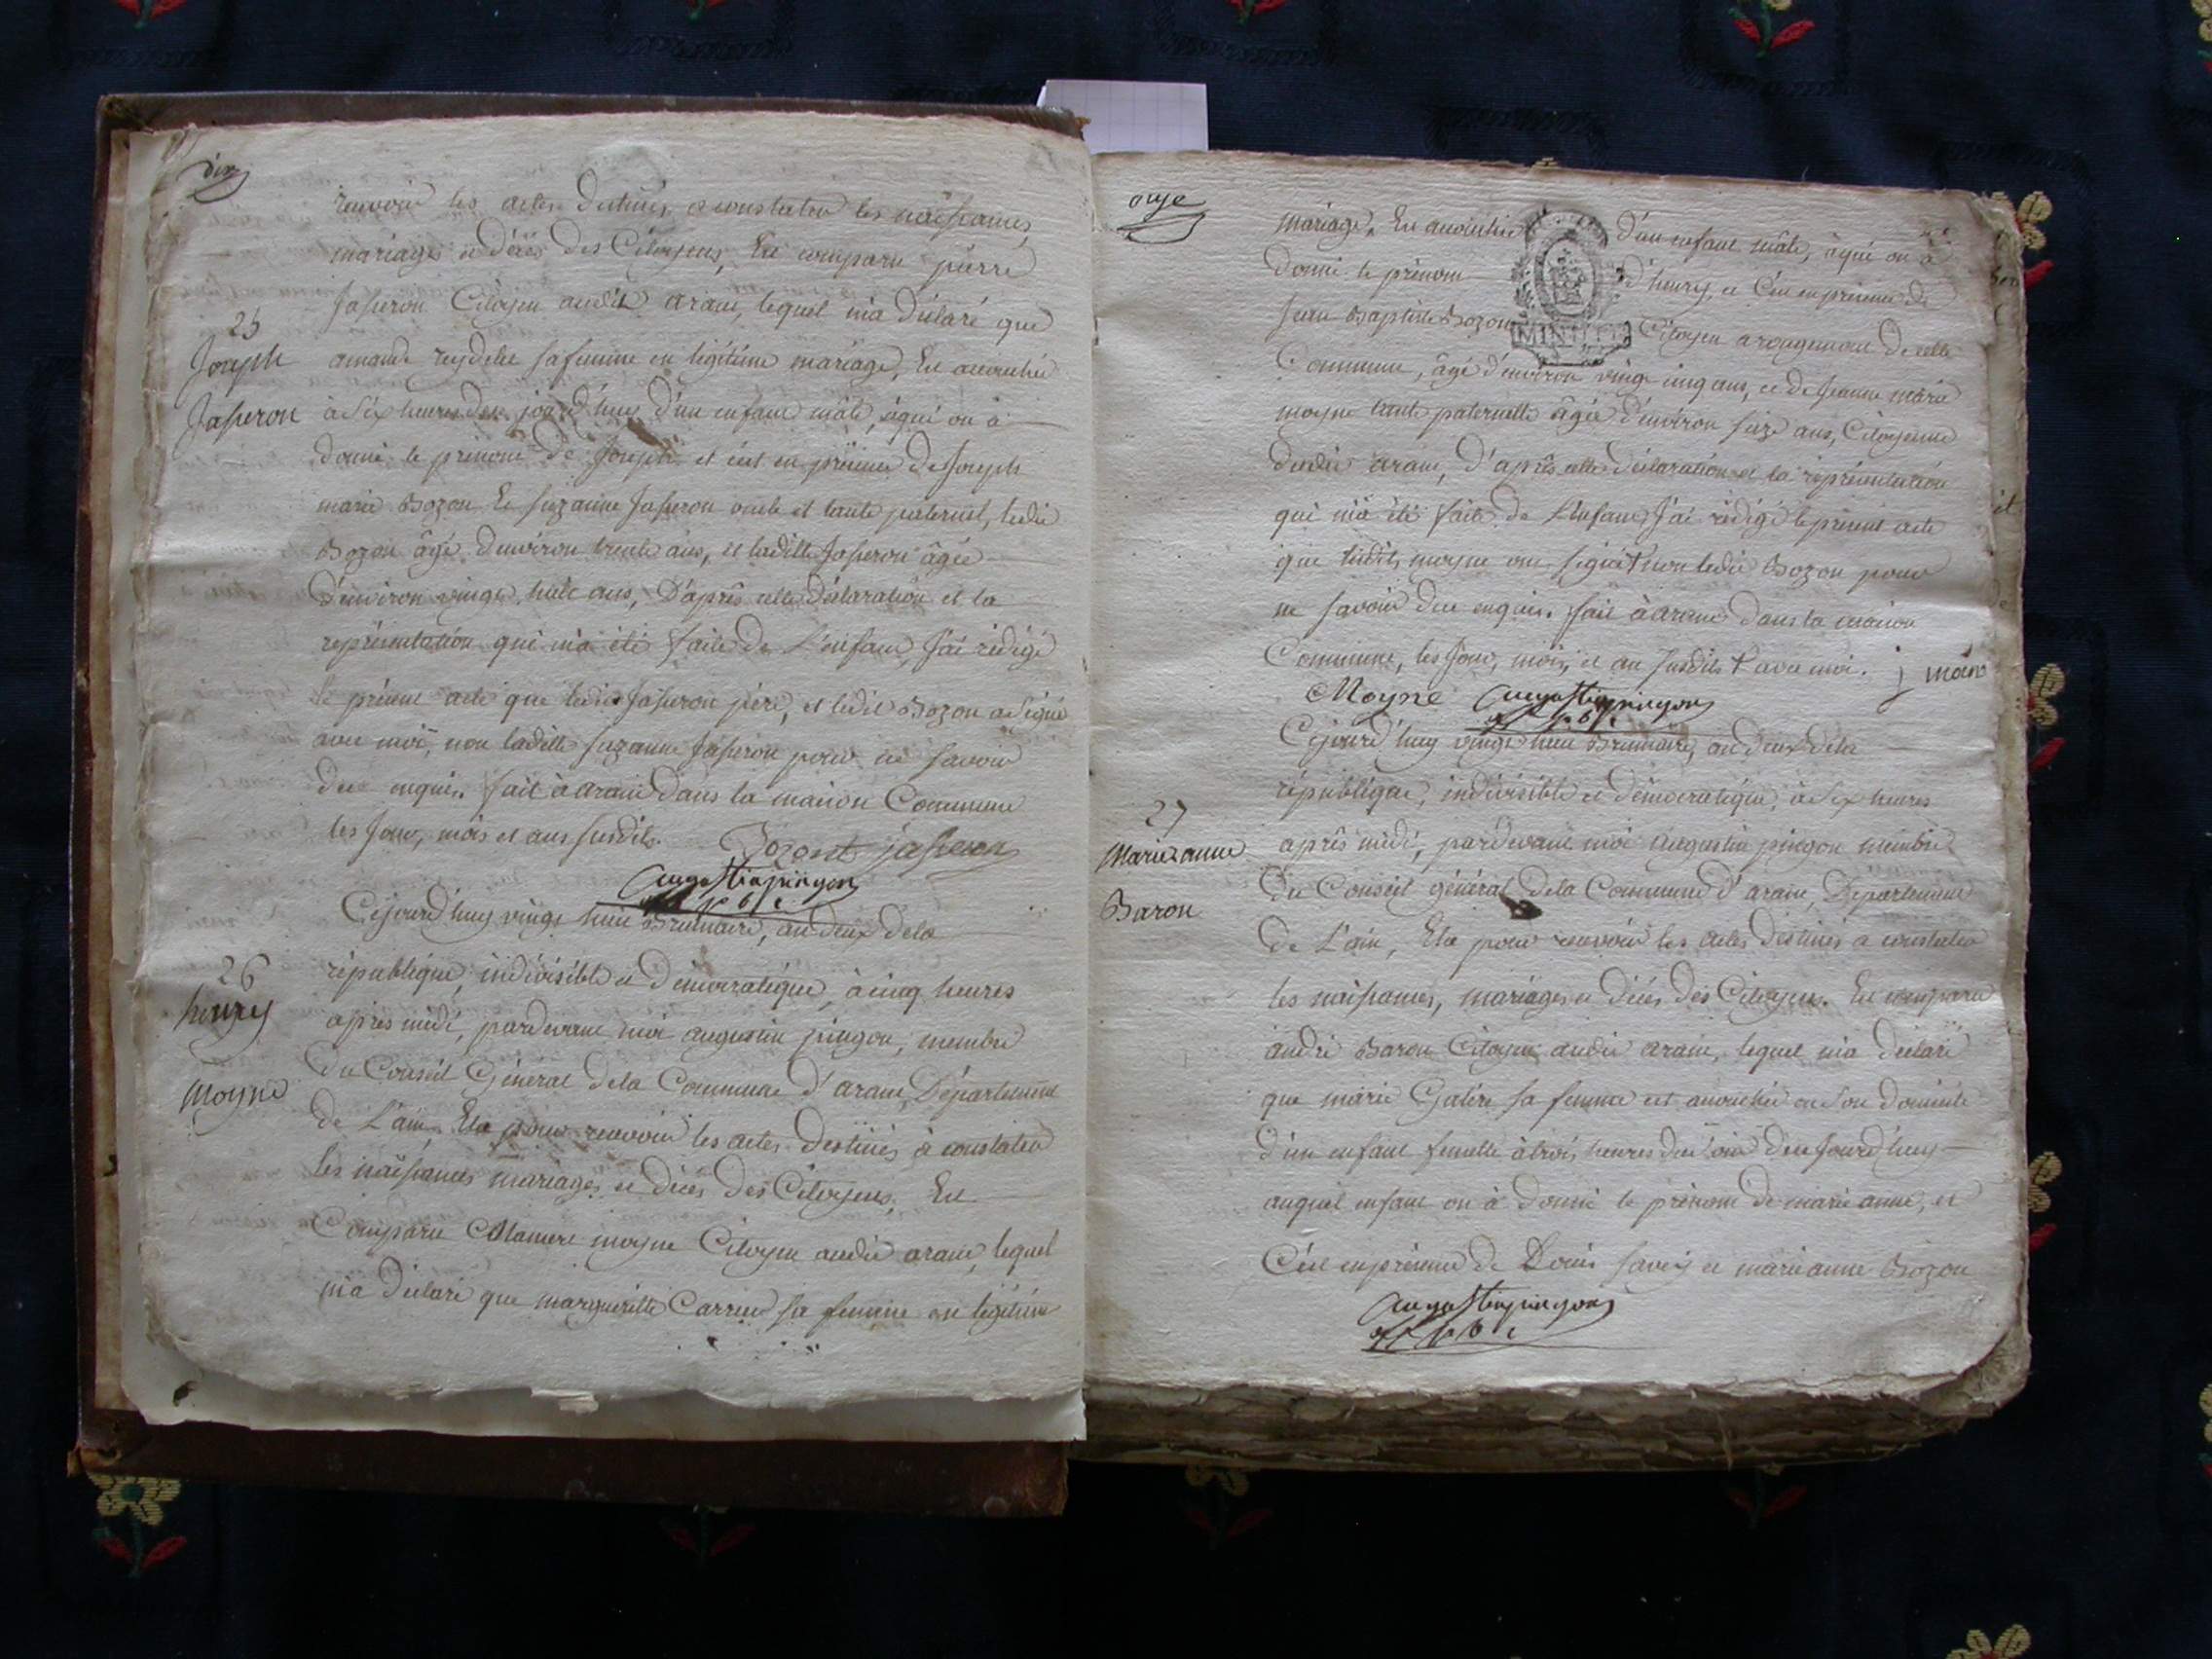 dix
recevoir les actes destinés a constater les naissances,
mariages et décès des Citoyens, Est comparu pierre
Jasseron Citoyen audit aranc, lequel m'a déclaré que
25
Joseph
Jasseron
amande reydelet sa femme en légitime mariage, Est accouchée
à six heures de ce jourd'huy d'un enfant mâle, àqui on à
donné le prénom de Joseph et c'est en présence de Joseph
marie Bozon et suzanne Jasseron oncle et tante paternel, ledit
Bozon âgé d'environ trente ans, et ladille Jasseron âgée
d'environ vingt huit ans, D'après cette déclaration et la
représentation qui m'a été faite de L'enfant, J'ai rédigé
le présent acte que ledit Jasseron père, et ledit Bozon a signé
avec moi, non ladille suzanne Jasseron pour ne savoir
de ce enquis. fait à aranc dans la maison Commune
les Jour, mois et ans susdits. Bozont jasseron
augustin pingon
Cejourd'huy vingt huit Brumaire, an deux dela
26
henry
Moyne
république, indivisible et démocratique, à cinq heures
après midi, pardevant moi augustin pingon, membre
du Conseil Général dela Commune d'aranc, Département
de L'ain, Elu pour recevoir les actes destinés à constater
les naissances mariages et décès des Citoyens, Est
Comparu moyne Citoyen audit aranc, lequel
m'a déclaré que marguerille Carrier sa femme en légitime
onze
mariage, Est accouchée d'un enfant mâle, àqui on à
donné le prénom d'henry, et C'est en présence de
Jean Baptiste Bozon Citoyen a rougemont de cette
MINUTES
Commune, âgé d'environ vingt cinq ans, et de Jeanne marie
moyne tante paternelle âgée d'environ seize ans, Citoyenne
dudit aranc, D'après cette déclaration et la représentation
qui m'a été faite de L'enfant, J'ai rédigé le présent acte
que lesdits moyne ont signé + non ledit Bozon pour
ne savoir de ce enquis. fait à aranc dans la maison
Commune, les Jour, mois, et an susdits + avec moi. j moin
Moyne augustin pingon
Cejourd'huy vingt huit Brumaire, an deux dela
république, indivisible et démocratique, à six heures
27
Marie anne
Baron
après midi, pardevant moi augustin pingon membre
du Conseil général dela Commune d'aranc, Département
de L'ain, Elu pour recevoir les actes destinés a constater
les naissances, mariages et décès des Citoyens. Est comparu
andré Baron Citoyen audit aranc, lequel m'a déclaré
que marie Galère sa femme est accouchée en son domicile
d'un enfant femelle à trois heures du soir de ce Jourd'huy
auquel enfant on à donné le prénom de marie anne, et
C'est en présence de Louis savey et marie anne Bozon
augustin pingon